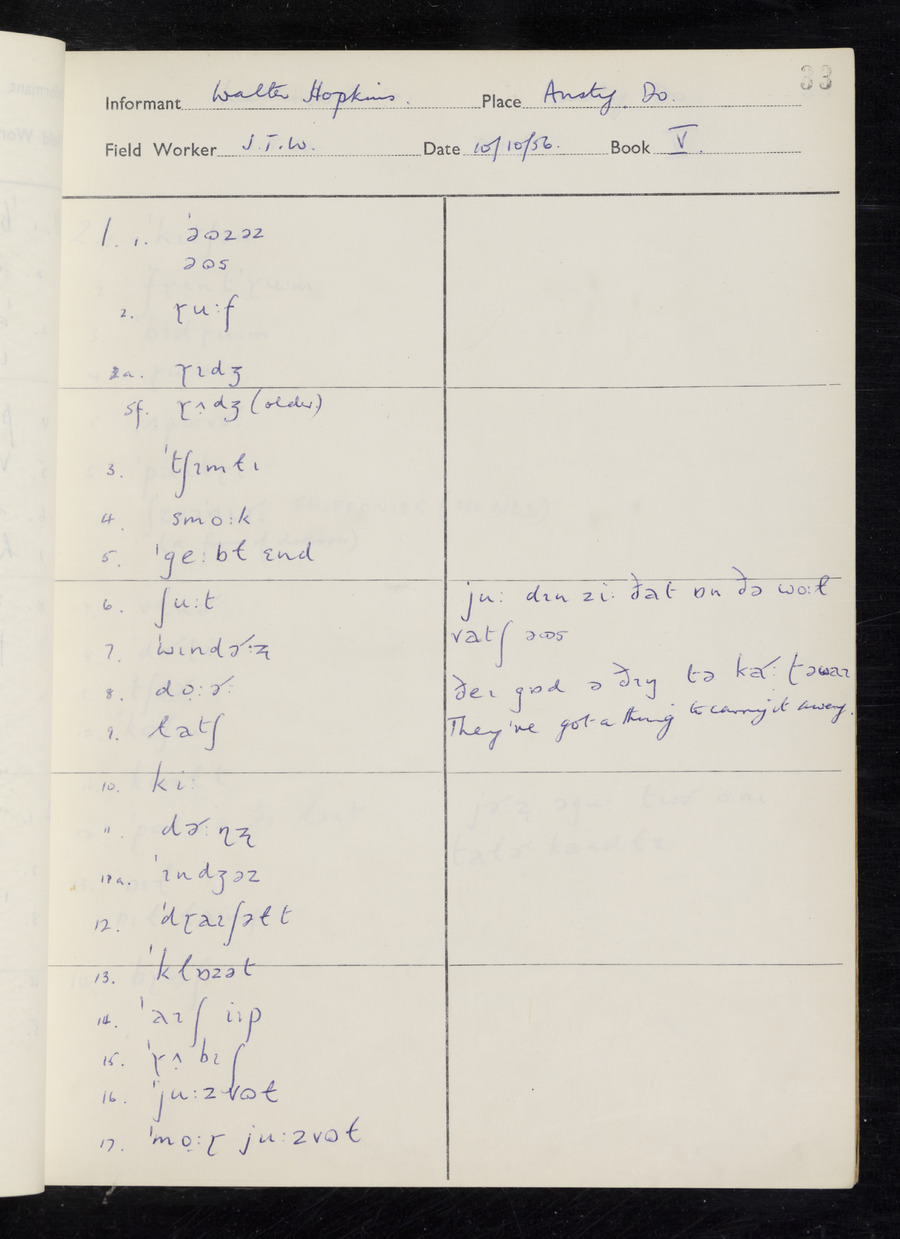 33
Informant Walter Hopkins. Place Ansty. Do.
Field Worker J.T.W. Date 10/10/56. Book V.
1. 1. ˈəɷzəz
əɷs
2. ɽu:f
2a. ɽɪdʒ
sf. ɽʌdʒ (older)
3. ˈtʃɪmɫɪ
4. smo:k
5. ˈge:bɫ ɛnd
6. ʃu:t
7. ˈwɪndɚ:ʐ
8. dọ:ɚ:
9. ɫatʃ
10. ki:
11. dɚ:ɳʐ
11a. ˈɪndʒəz
12. ˈdɽaɪʃəɫt
13. ˈkɫɒzət
14. ˈaɪʃ ɪɪp
15. ˈɽʌbɪʃ
16. ˈju:zvɷɫ
17. ˈmọ:ɽ ju:zvɷɫ
ju: dɪn zi: ðat ɒn ðə wo:ɫ
vatʃ əɷs
ðeɪ gɒd ə ðɪŋ tə
They've got a thing to carry it away.